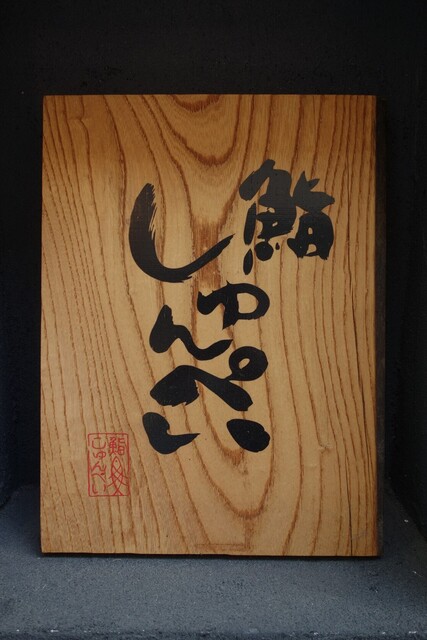 鮨
しゅんぺい
鮨
しゅんぺい